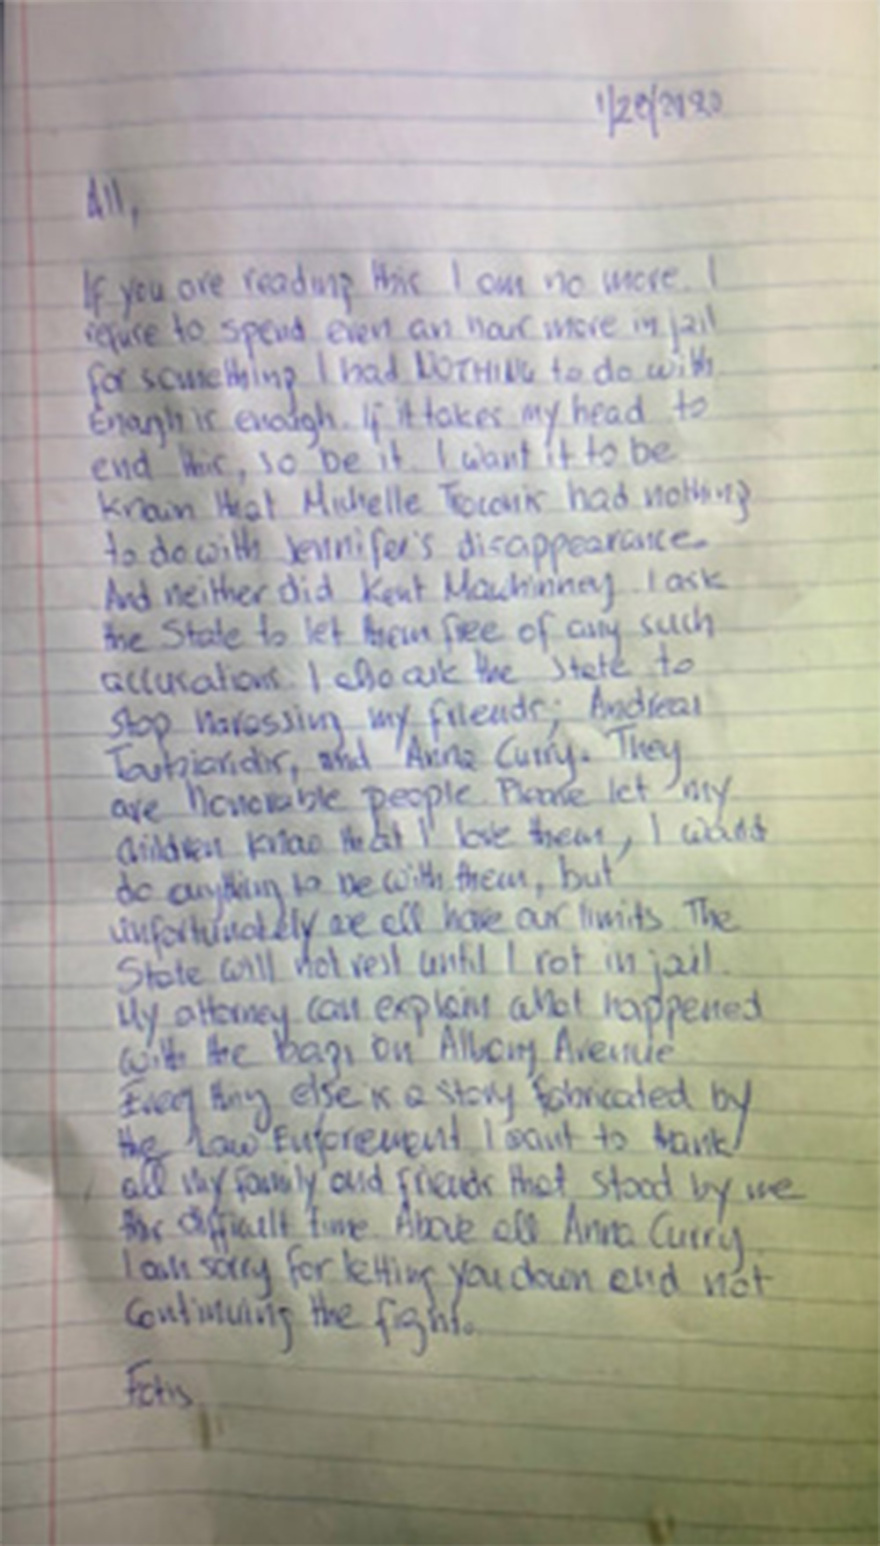 1/28/2020
All,
If you are reading this I am no more. I
refuse to spend even an hour more in jail
for something I had NOTHING to do with
Enough is enough. If it takes my head to
end this, so be it. I want it to be
known that Michelle Troconis had nothing
to do with Jennifer's disappearance.
And neither did Kent Mawhinney. I ask
the State to let them free of any such
accusations. I also ask the State to
stop harassing my friends; Andreas
Toutziaridis, and Anna Curry. They
are honorable people. Please let my
children know that I love them, I would
do anything to be with them, but
unfortunately we all have our limits. The
State will not rest until I rot in jail.
My attorney can explain what happened
with the bags on Albany Avenue
Everything else is a story fabricated by
the Law Enforcement I want to thank
all my family and friends that stood by me
this difficult time. Above all Anna Curry.
I am sorry for letting you down and not
continuing the fight.
Fotis